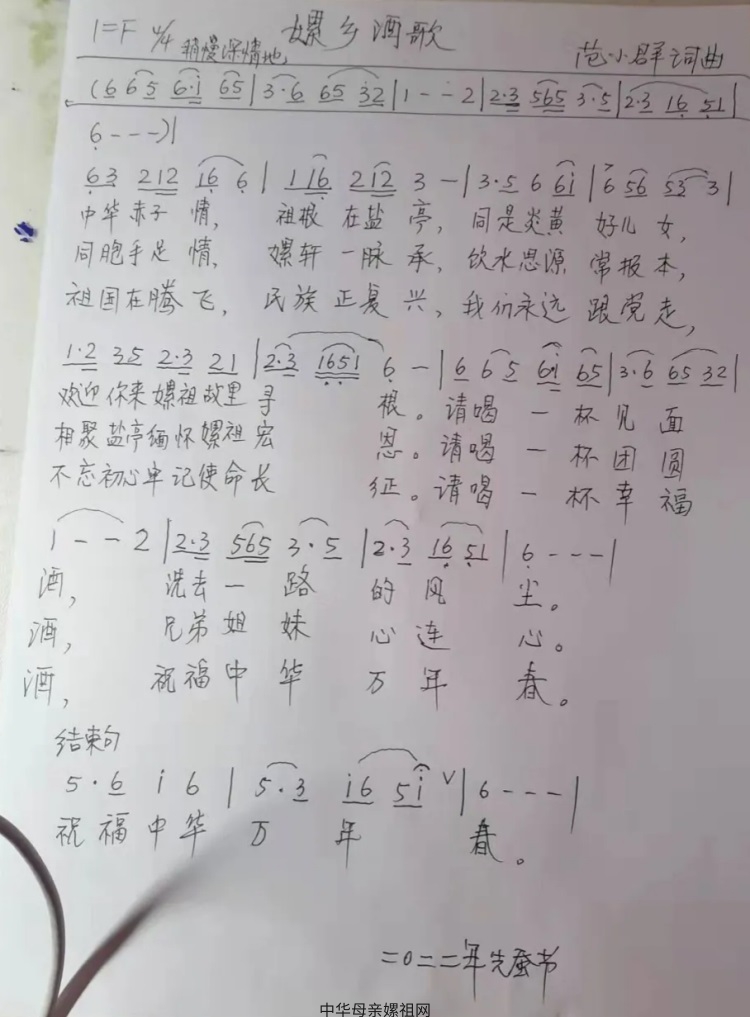 1=F 4/4 稍慢深情地 嫘乡酒歌 范小群词曲
(6 65 6·i 65|3·6 65 32|1--2|2·3 565 3·5|2·3 16 51|
6---)|
63 212 16 6|1 16 212 3-|3·5 6 6i|6 56 53 3|
中华赤子情， 祖根在盐亭，同是炎黄好儿女，
同胞手足情， 嫘轩一脉承，饮水思源常报本，
祖国在腾飞，民族正复兴，我们永远跟党走，
1·2 35 2·3 21|2·3 1651 6-|6 65 6i 65|3·6 65 32|
欢迎你来嫘祖故里寻根。请喝一杯见面
相聚盐亭缅怀嫘祖宏恩。请喝一杯团圆
不忘初心牢记使命长征。请喝一杯幸福
1--2|2·3 565 3·5|2·3 16 51|6---|
酒， 洗去一路的风尘。
酒， 兄弟姐妹心连心。
酒， 祝福中华万年春。
结束句
5·6 i 6|5·3 i6 5i V|6---|
祝福中华万年春。
二0二二年先蚕节
中华母亲嫘祖网